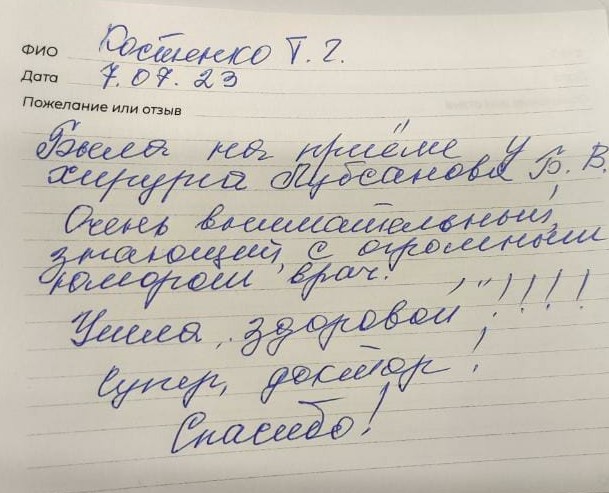 ФИО Костенко Т. Г.
Дата 7.07.23
Пожелание или отзыв
Была на приёме у
хирурга Лубсанова Б. В.
Очень внимательный,
знающий, с огромным
юмором врач.
Ушла "здоровой"!!!!
Супер, доктор!
Спасибо!